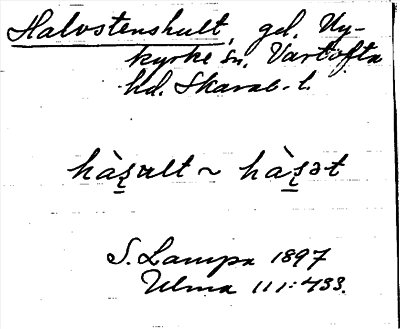 Halvstenshult, gd. Ny-
kyrke sn, Vartofta
hd. Skarab. l.
hàs̱ult ~ hàs̱ət
S. Lampa 1897
Ulma 111:433.